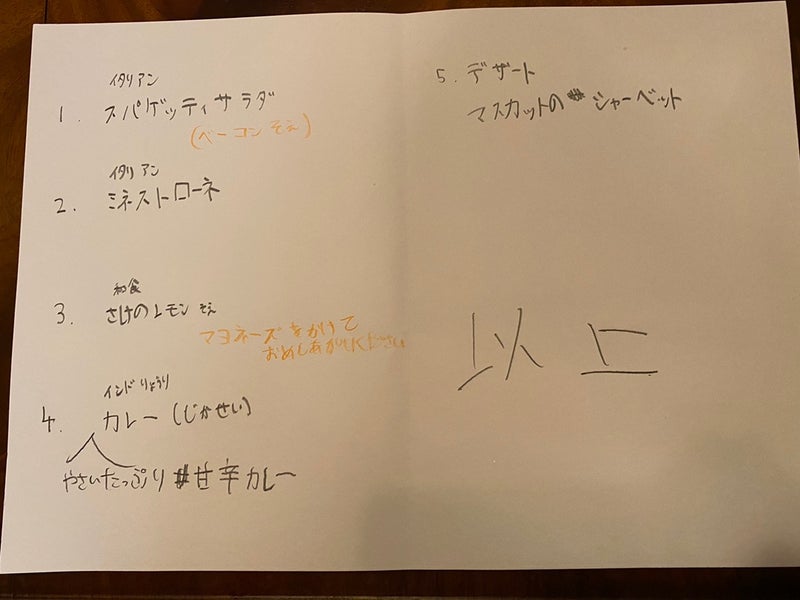 イタリアン
1. スパゲッティサラダ
(ベーコンそえ)
イタリアン
2. ミネストローネ
和食
3. さけのレモンそえ
マヨネーズをかけて
おめしあがりください
インドりょうり
4. カレー(じかせい)
やさいたっぷり 甘辛カレー
5. デザート
マスカットの シャーベット
以上